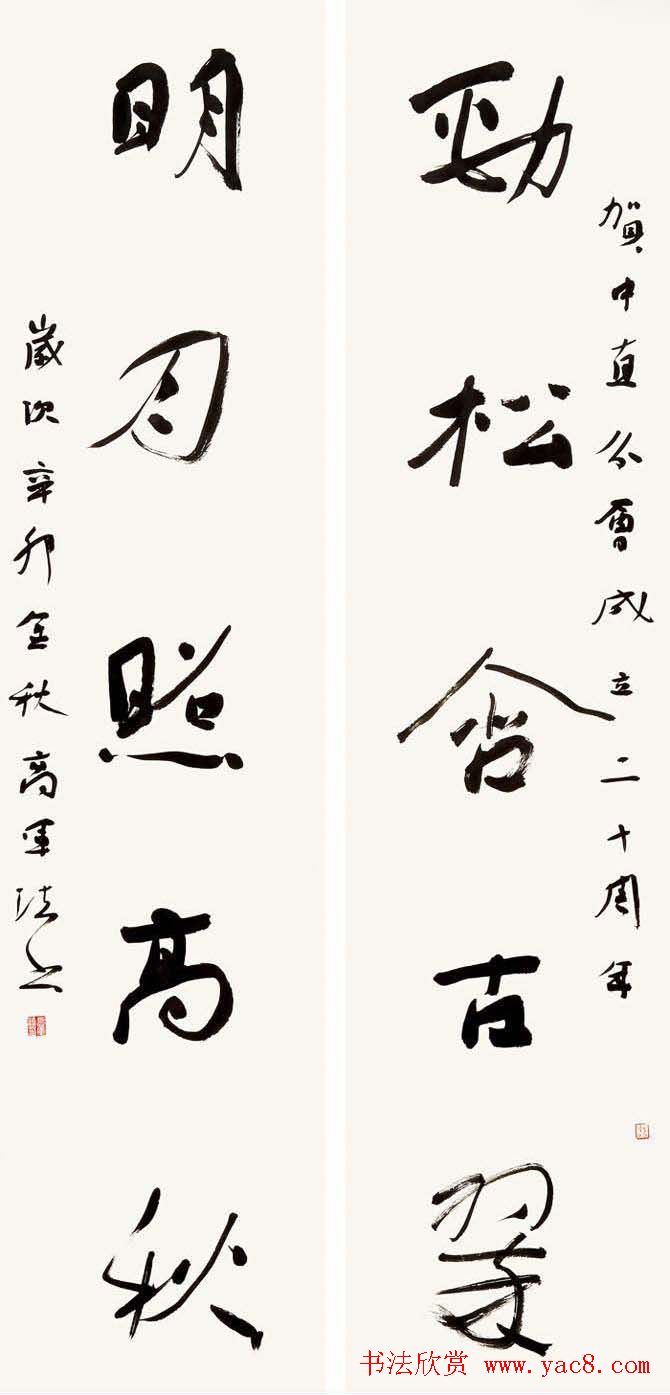 賀中直分會成立二十周年
勁松含古翠
明月照高秋
歲次辛卯金秋高軍法书
书法欣赏 www.yac8.com